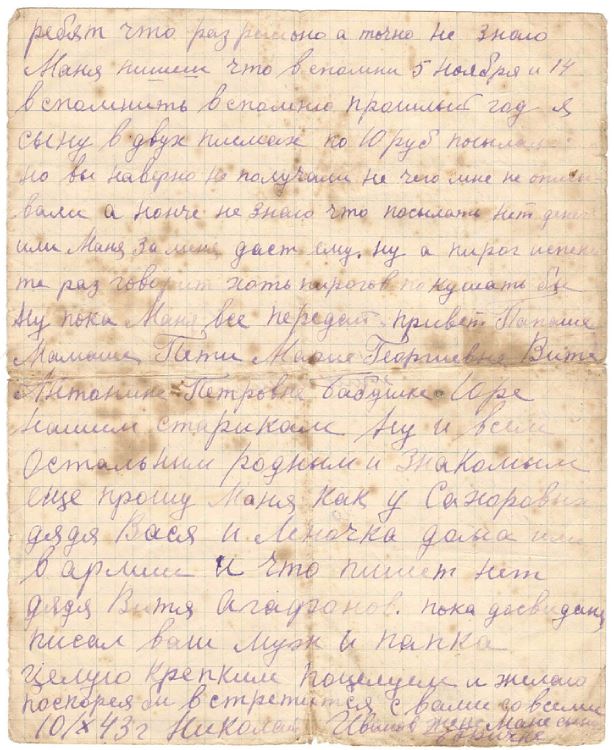 ребят что раз рально а точно не знаю
Маня пишеш что вспомни 5 ноября и 14
вспомнить вспомню прошлый год я
сыну в двух письмах по 10 руб посылал
но вы наверно не получали не чего мне не описы
вали а нонче не знаю что посылать нет денег
или Маня за меня даст ему. ну а пирог испеки
те раз говорит хоть пирогов покушать бы
Ну пока Маня все передай привет Папаше
Мамаше Пети Марие Георгиевне Вите
Антонине Петровне бабушке Юре
нашим старикам Ну и всем
остальным родным и знакомым
еще прошу Маня как у Сахоровых
дядя Вася и Леночка дома или
в армии и что пишет нет
дядя Витя Агафонов. пока досвиданя
писал ваш муж и папка
целую крепким поцелуем и желаю
поскорея бы встретится с вами со всеми
10/X 43 г Николай Иванов жене Мане сыну